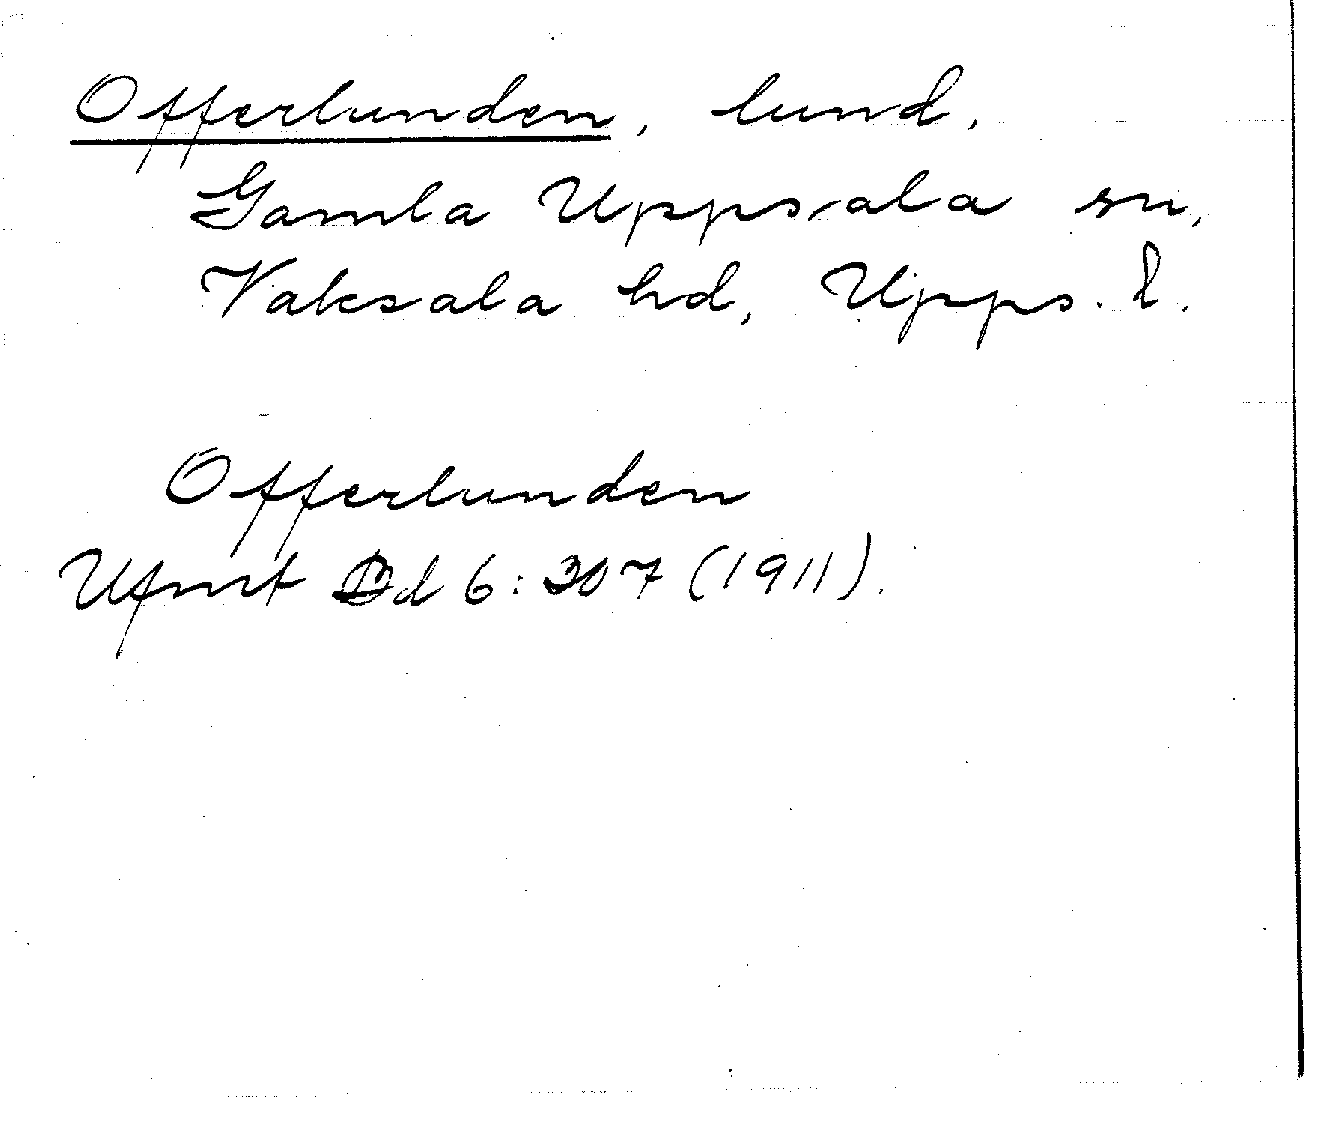 Offerlunden, lund,
Gamla Uppsala sn,
Vaksala hd, Upps. l.
Offerlunden
Ufmt Dd 6:207 (1911).